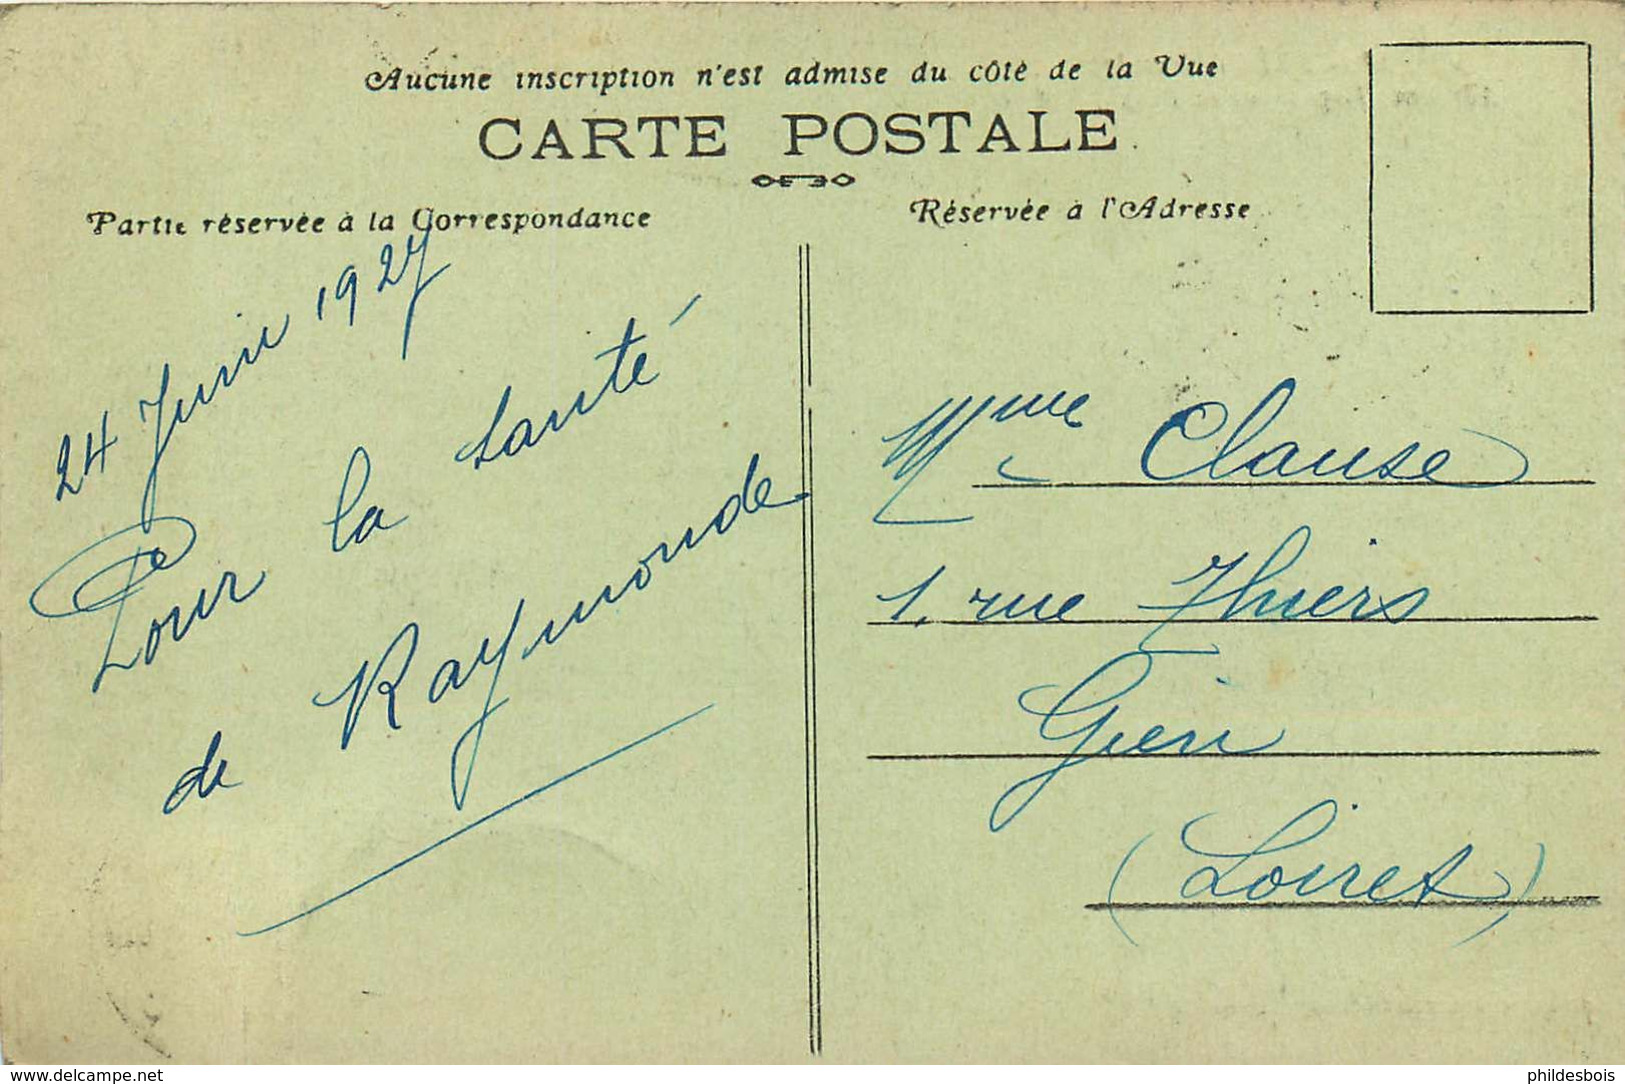 Aucune inscription n'est admise du côté de la Vue
CARTE POSTALE
Partie réservée à la Correspondance
Réservée à l'Adresse
24 Juin 1927
Pour la santé
de Raymonde
Mme Clause
1, rue Thiers
Gien
(Loiret)
www.delcampe.net
phildesbois